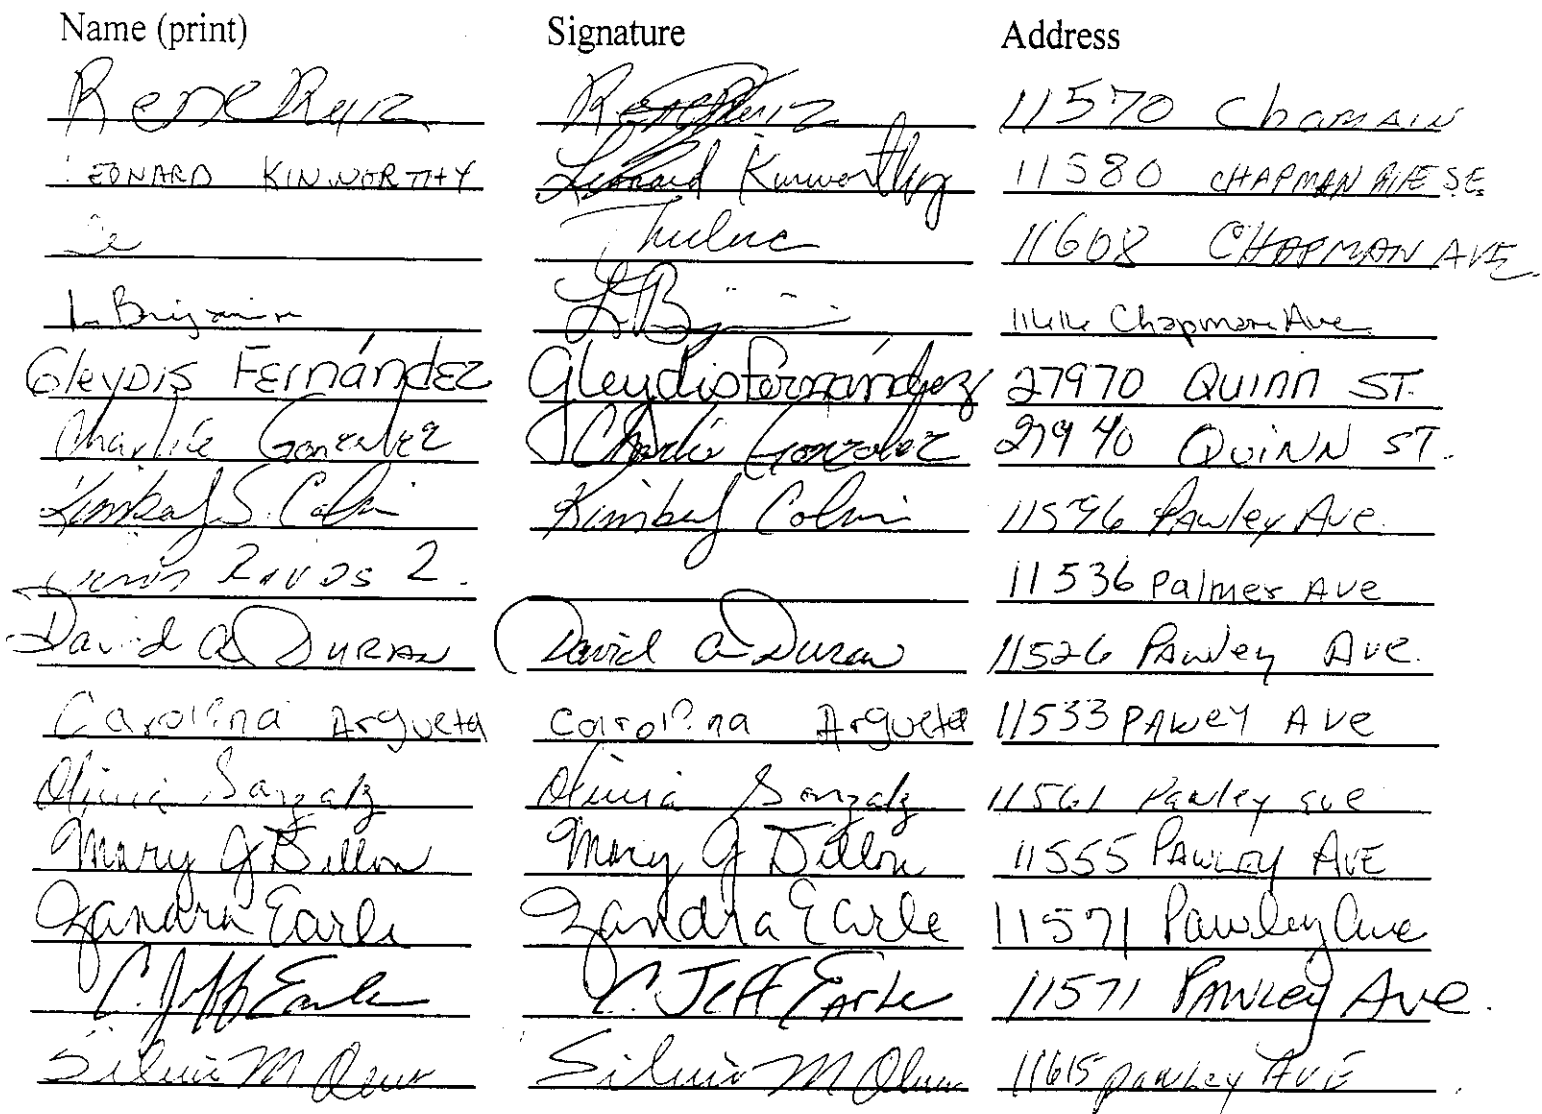 Name (print) Signature Address
Rene Ruiz Rene Ruiz 11570 Chamain
EONARD KINWORTHY Leonard Kinworthy 11580 CHAPMAN AVE SE
11608 CHAPMAN AVE.
L. 11616 Chapman Ave
GleyDis FErnándEz Gleydis Fernández 27970 QUINN ST.
Charlie Gonzalez Charlie Gonzalez 27940 QUINN ST.
S. Kimberly 11596 Pawley Ave.
2. 11536 Palmer Ave
David A DURAN David A Duran 11526 PAwley Ave.
Carolina Argueta Carolina Argueta 11533 PAWEY AVe
Olivia Olivia 11561 Pawley ave
Mary J Dillon Mary J Dillon 11555 PAWLEY AVE
Zandra Earle Zandra Earle 11571 Pawley Ave
C. Jeff Earle C. JEFF EARLE 11571 PAWLEY Ave.
Silvia M Silvia M 11615 PAWLEY AVE